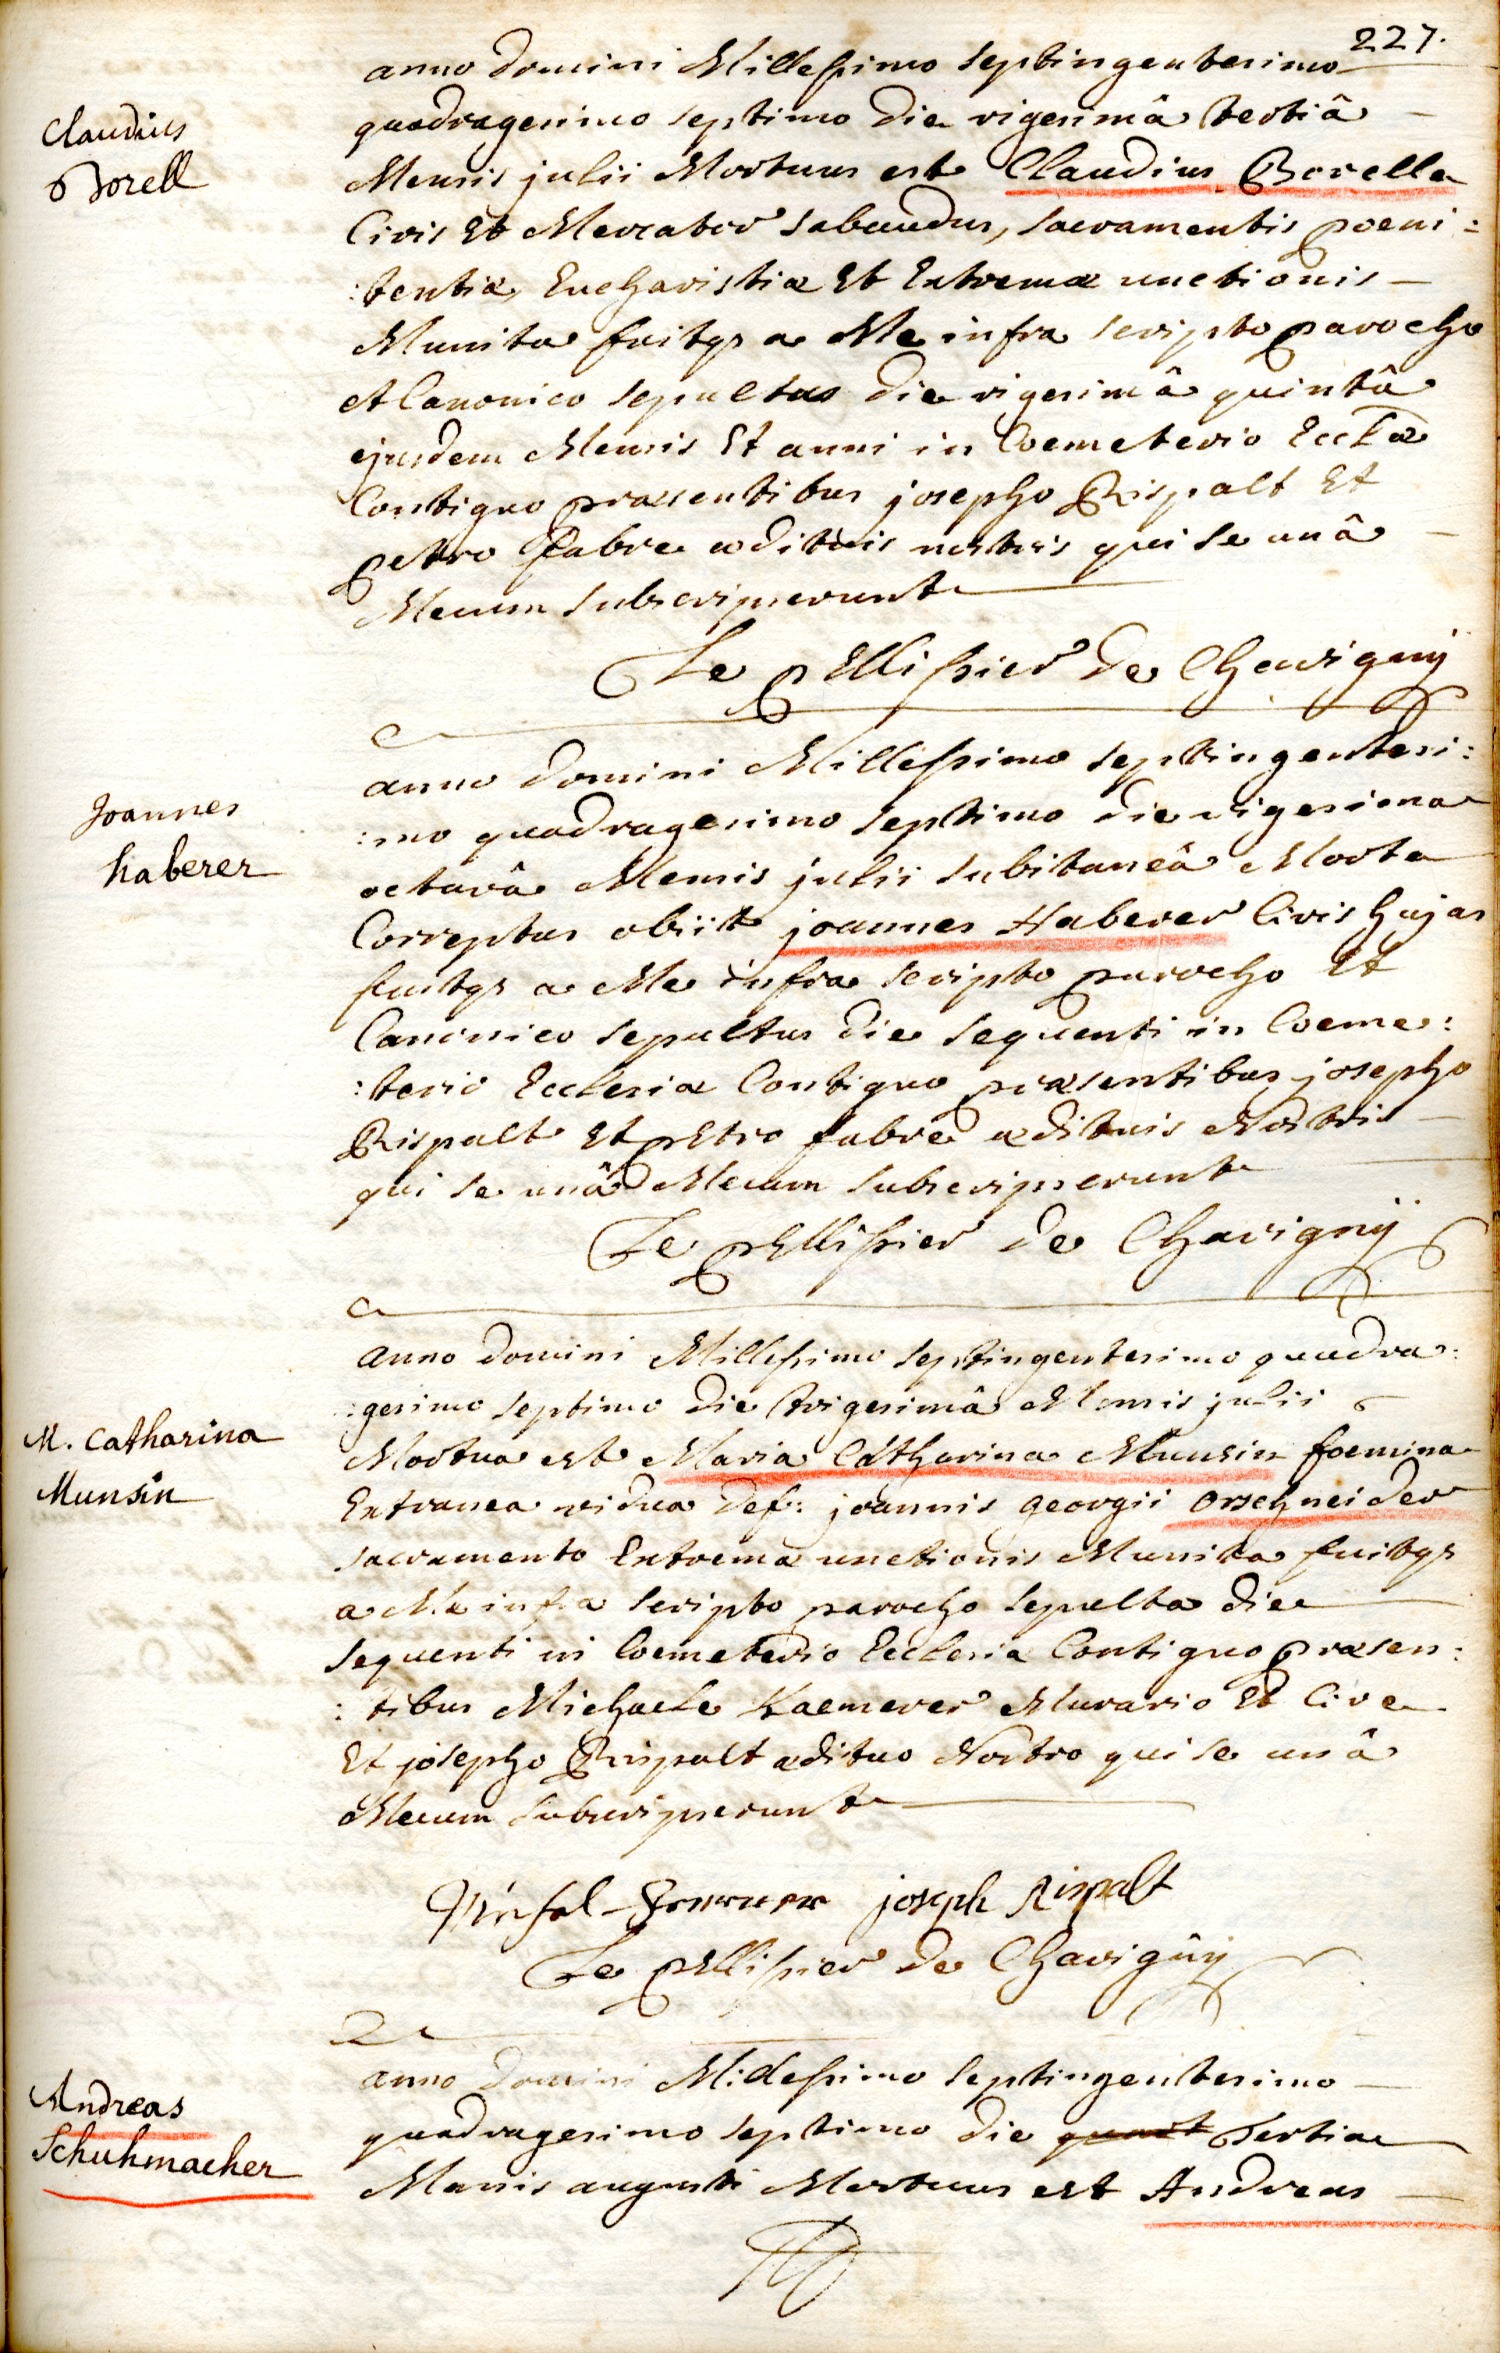 227.
Claudius
Borell
anno Domini Millesimo septingentesimo
quadragesimo septimo die vigesimâ tertiâ
Mensis julii Mortuus est Claudius Borelle
Civis Et Mercator sabaudus, sacramentis poeni:
:tentiæ, Eucharistiæ Et Extremæ unctionis
Munitus fuitqs a Me infra scripto parocho
et Canonico sepultus die vigesimâ quintâ
ejusdem Mensis Et anni in Coemeterio Eccl͞æ
Contiguo præsentibus josepho Rispalt Et
petro fabre ædituis nostris qui se unâ
Mecum subscripserunt
Le pEllissier de Chavigny
Joannes
haberer
anno domini Millesimo septingentesi:
:mo quadragesimo septimo die vigesima
octavâ Mensis julii subitaneâ Morte
Correptus obiit joannes Haberer Civis hujas
fuitqs a Me infra scripto parocho Et
Canonico sepultus die sequenti in Coeme:
:terio Ecclesiæ Contiguo præsentibus josepho
Rispalt Et pEtro fabre ædituis Nostris
qui se unâ Mecum subscripserunt
Le pEllissier de Chavignÿ
M. Catharina
Munsin
anno domini Millesimo septingentesimo quadra:
:gesimo septimo die trigesimâ Mensis julii
Mortua est Maria Catharina Munsin foemina
Extranea vidua def: joannis georgii orschneider
sacramento Extremæ unctionis Munita fuitqs
a Me infra scripto parocho sepulta die
sequenti in Coemeterio Ecclesiæ Contiguo præsen:
:tibus Michaele Kaemerer Murario Et Cive
Et josepho Rispalt ædituo Nostro qui se unâ
Mecum subscripserunt
joseph Rispalt
Le pEllissier de Chavigny
Andreas
Schuhmacher
anno Domini Millesimo septingentesimo
quadragesimo septimo die Tertia
Mensis augusti Mortuus est Andreas